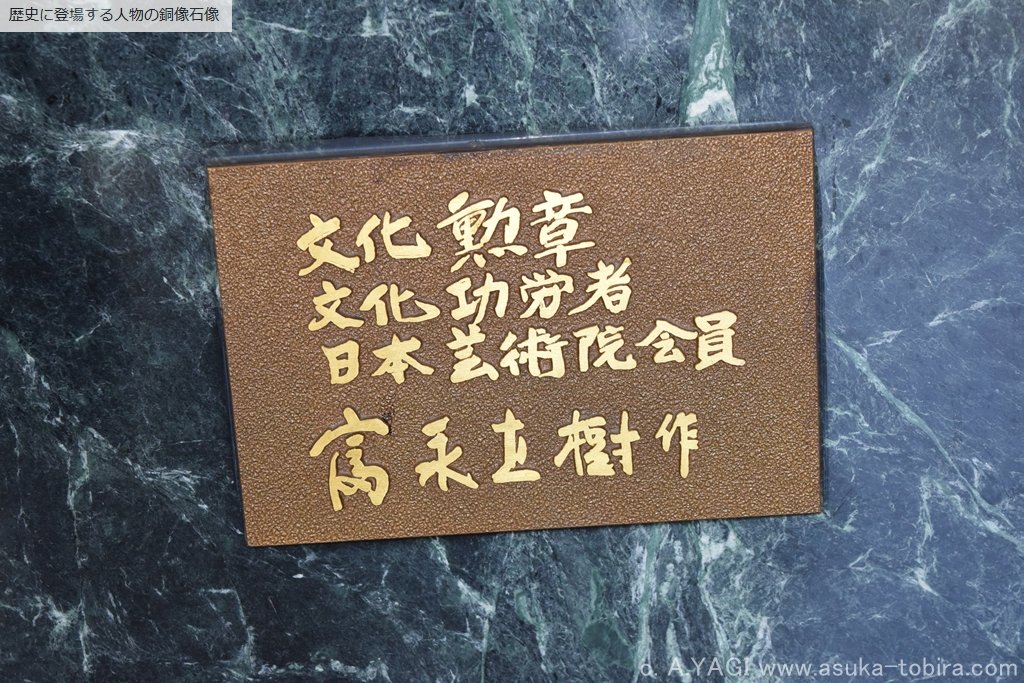 歴史に登場する人物の銅像石像
文化勲章
文化功労者
日本芸術院会員
富永直樹作
c. A.YAGI www.asuka-tobira.com